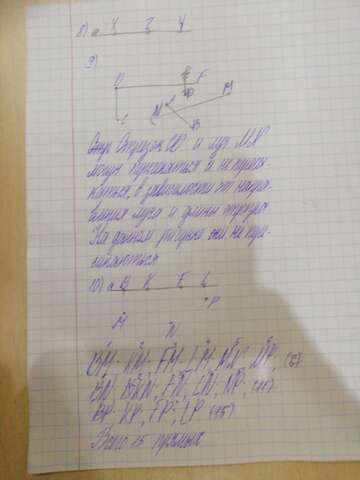 8) a X Z Y
9)
D F
C M A B
Отрезок CD и луч MA
могут пересекаться и не пересе-
каться, в зависимости от направ-
ления луча и длины отрезка.
На данном рисунке они не пере-
секаются
10) a B K E L
P
M N
BM, KM, EM, LM, MN, MP, (6)
BN, KN, EN, LN, NP,
BP, KP, EP, LP (15)
Всего 15 прямых